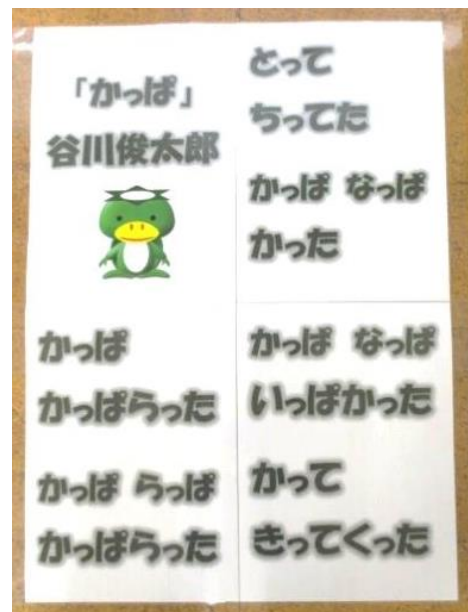 「かっぱ」
谷川俊太郎
かっぱ
かっぱらった
かっぱ らっぱ
かっぱらった
とって
ちってた
かっぱ なっぱ
かった
かっぱ なっぱ
いっぱかった
かって
きってくった